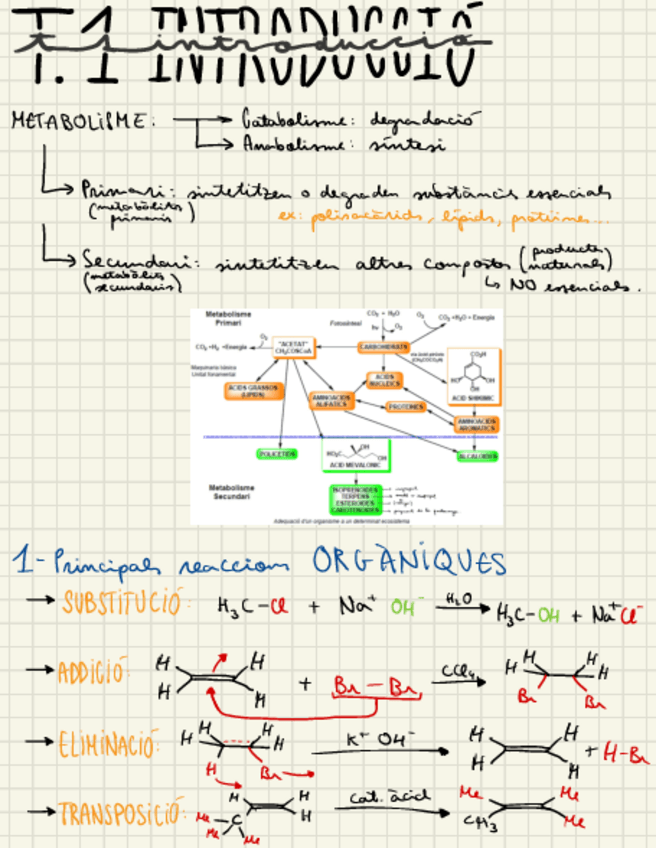 T.1 INTRODUCCIÓ
t. 1 introducció
METABOLISME:
Catabolisme: degradació
Anabolisme: síntesi
Primari: sintetitzen o degraden substàncies essencials
(metabòlits primaris)
ex: polisacàrids, lípids, proteïnes...
Secundari: sintetitzen altres compostos (productes naturals)
(metabòlits secundaris)
↳ NO essencials.
Metabolisme Primari
CO₂ + H₂O
Fotosíntesi
hν
O₂
O₂
CO₂ +H₂O + Energia
O₂
"ACETAT"
CH₃COSCoA
CARBOHIDRATS
CO₂ +H₂ +Energia
Maquinària bàsica
Unitat fonamental
CO₂H
HO
OH
OH
ÀCID SHIKÍMIC
ÀCIDS NUCLEICS
ÀCIDS GRASSOS (LÍPIDS)
AMINOÀCIDS ALIFÀTICS
PROTEÏNES
AMINOÀCIDS AROMÀTICS
POLICÈTIDS
HO₂C
OH
OH
ÀCID MEVALÒNIC
ALCALOIDES
Metabolisme Secundari
ISOPRENOIDES
TERPENS
ESTEROIDES
CAROTENOIDES
Adequació d'un organisme a un determinat ecosistema
1-Principals reaccions ORGÀNIQUES
→ SUBSTITUCIÓ: H₃C-Cl + Na⁺ OH⁻ H₂O → H₃C-OH + Na⁺Cl⁻
→ ADDICIÓ: H H H H + Br-Br CCl₄ → H H H H Br Br
→ ELIMINACIÓ: H H H H H Br K⁺ OH⁻ → H H H H + H-Br
→ TRANSPOSICIÓ: H H H C Me Me Me cat. àcid → Me Me CH₃ Me